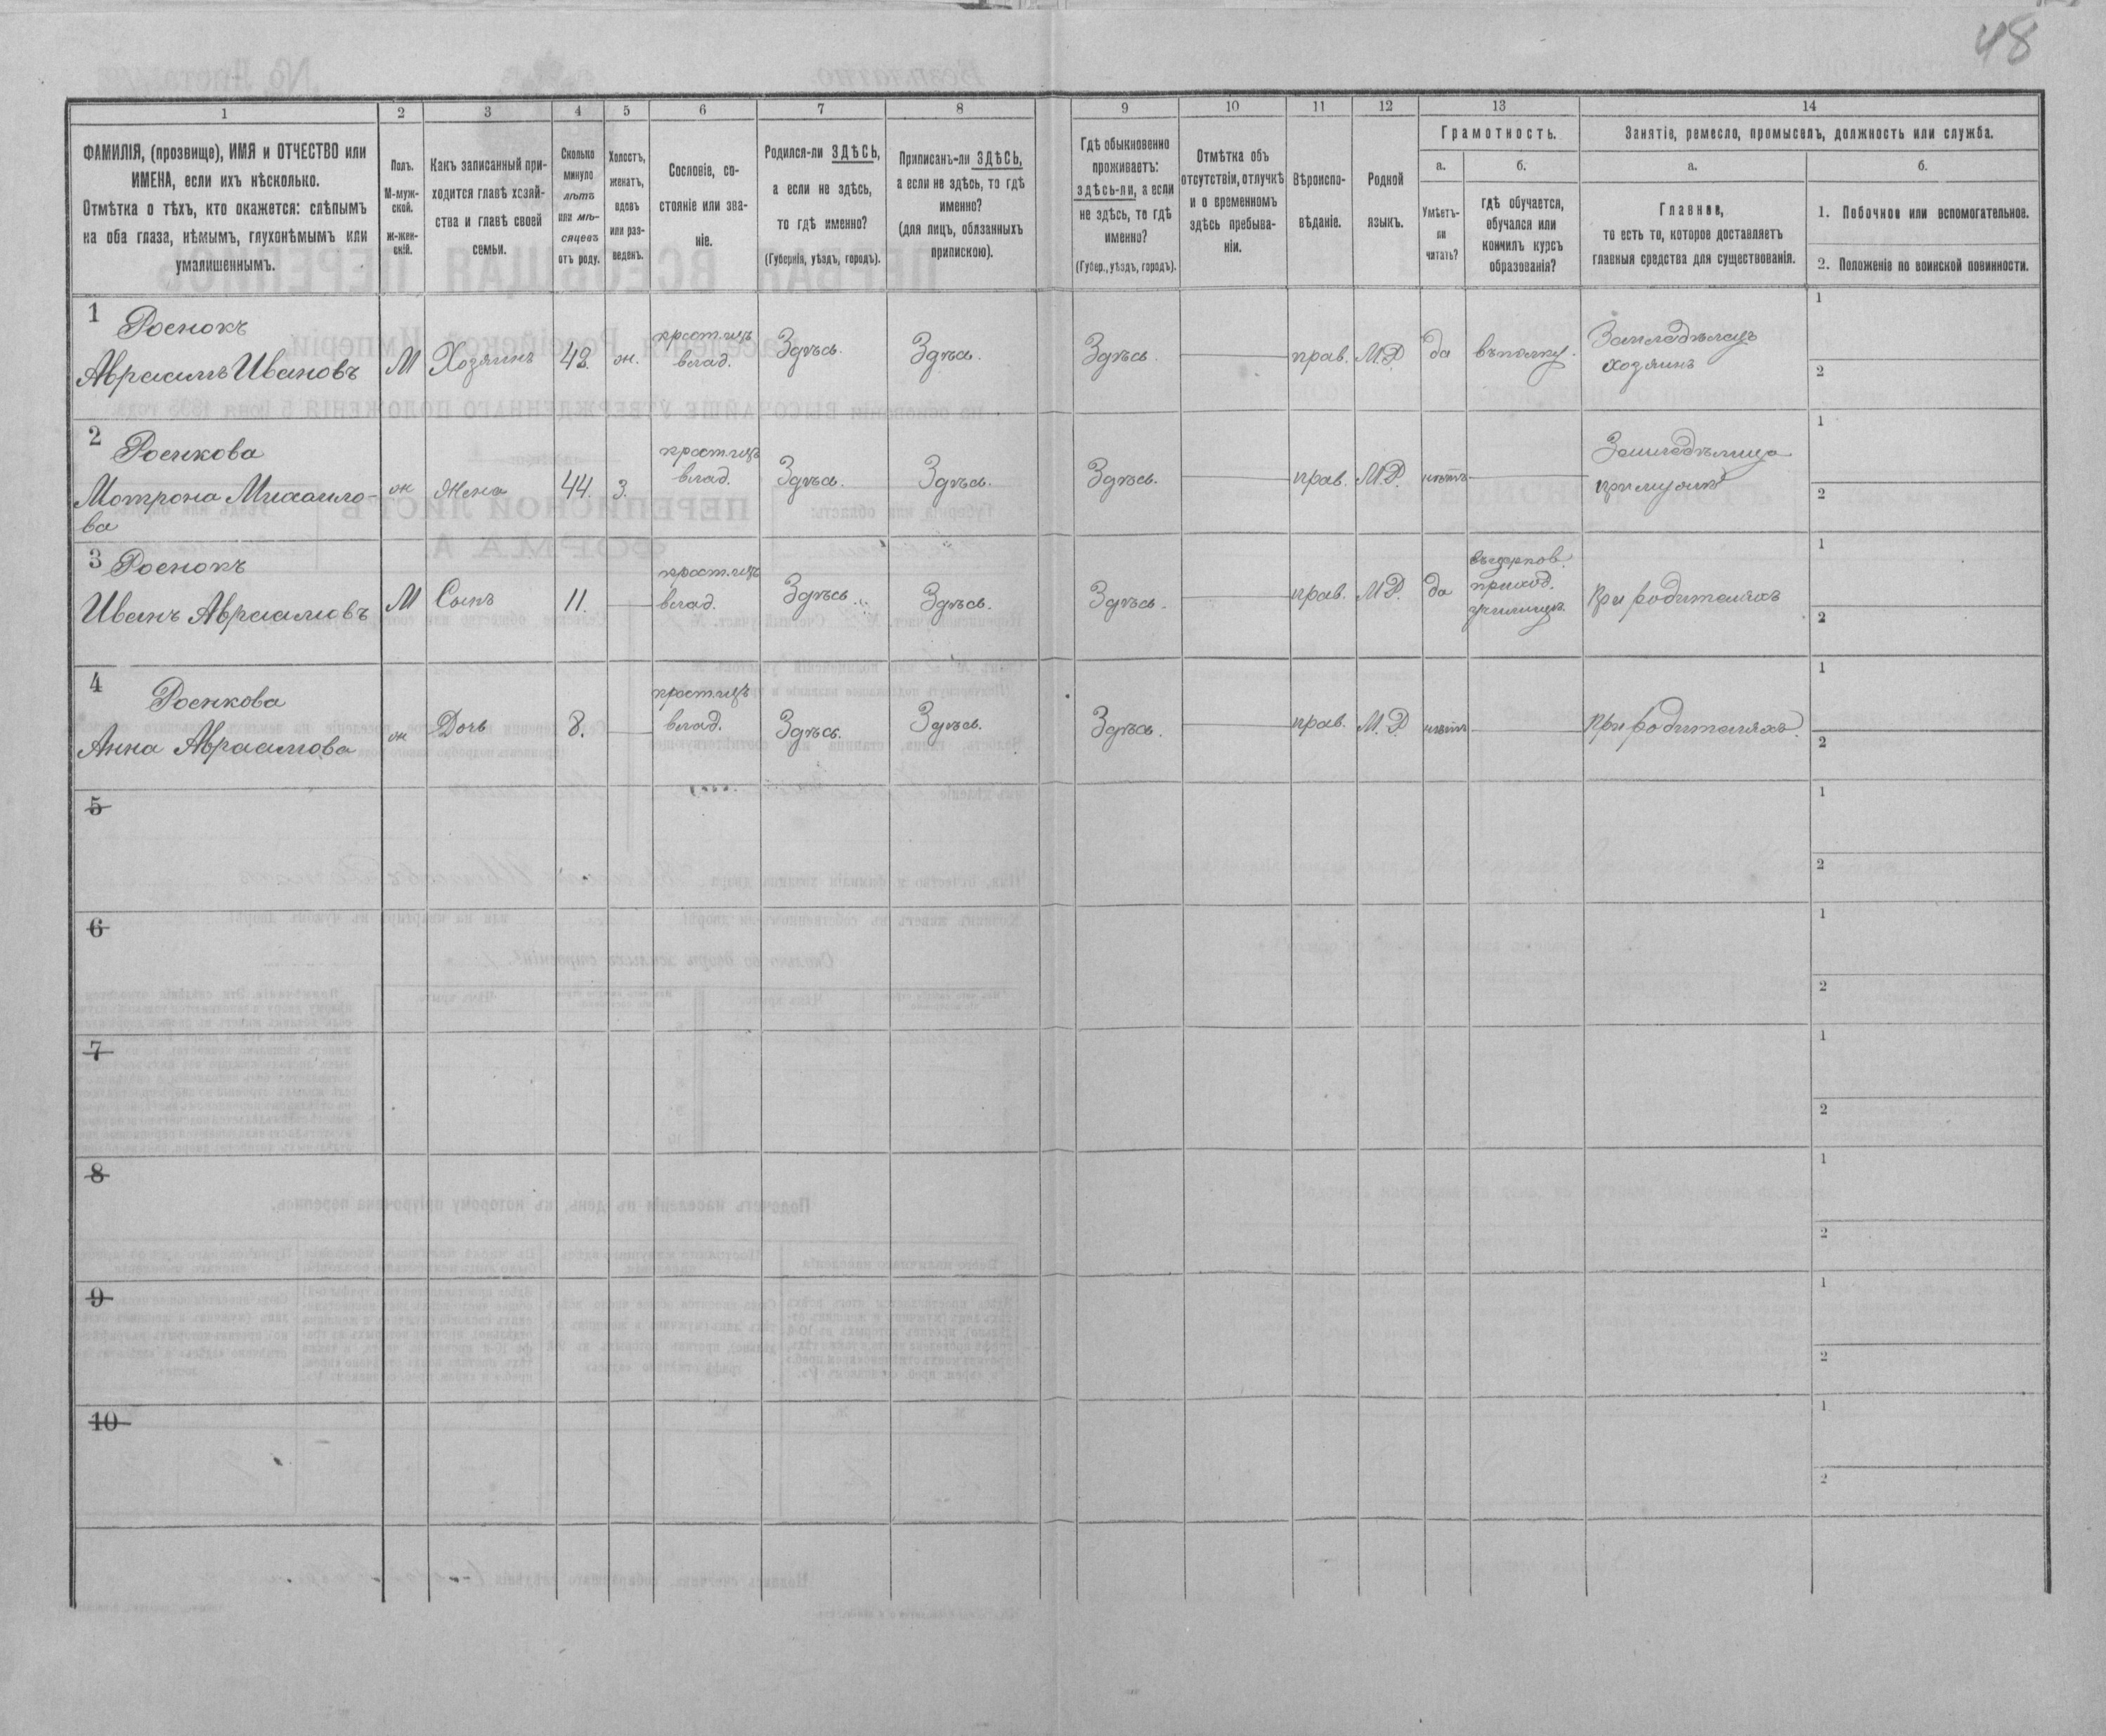 48
1
2
3
4
5
6
7
8
9
10
11
12
13
14
ФАМИЛІЯ, (прозвище), ИМЯ и ОТЧЕСТВО или
ИМЕНА, если ихъ нѣсколько.
Отмѣтка о тѣхъ, кто окажется: слѣпымъ
на оба глаза, нѣмымъ, глухонѣмымъ или
умалишеннымъ.
Полъ.
М-муж-
ской.
ж-жен-
скій.
Какъ записанный при-
ходится главѣ хозяй-
ства и главѣ своей
семьи.
Сколько
минуло
лѣтъ
или мѣ-
сяцевъ
отъ роду.
Холостъ,
женатъ,
вдовъ
или раз-
веденъ.
Сословіе, со-
стояніе или зва-
ніе.
Родился-ли ЗДѢСЬ,
а если не здѣсь,
то гдѣ именно?
(Губернія, уѣздъ, городъ).
Приписанъ-ли ЗДѢСЬ,
а если не здѣсь, то гдѣ
именно?
(для лицъ, обязанныхъ
припискою).
Гдѣ обыкновенно
проживаетъ:
здѣсь-ли, а если
не здѣсь, то гдѣ
именно?
(Губер., уѣздъ, городъ).
Отмѣтка объ
отсутствіи, отлучкѣ
и о временномъ
здѣсь пребыва-
ніи.
Вѣроиспо-
вѣданіе.
Родной
языкъ.
Грамотность.
а.
б.
Умѣетъ-
ли
читать?
гдѣ обучается,
обучался или
кончилъ курсъ
образованія?
Занятіе, ремесло, промыселъ, должность или служба.
а.
б.
Главное,
то есть то, которое доставляетъ
главныя средства для существованія.
1. Побочное или вспомогательное.
2. Положеніе по воинской повинности.
1
Роенокъ
Авраамъ Ивановъ
М
Хозяинъ
42.
ж.
влад.
Здѣсь.
Здѣсь.
Здѣсь.
прав.
М.Р.
да
въ полку.
Земледѣлецъ
хозяинъ
1
2
2
Роенкова
Мотрона Михаило-
ва
ж
Жена
44.
З.
влад.
Здѣсь.
Здѣсь.
Здѣсь.
прав.
М.Р.
нѣтъ
Земледѣлица
при мужѣ
1
2
3
Роенокъ
Иванъ Авраамовъ
М
Сынъ
11.
влад.
Здѣсь.
Здѣсь.
Здѣсь.
прав.
М.Р.
да
въ церков.
приход.
училищѣ.
При родителяхъ
1
2
4
Роенкова
Анна Авраамова
ж
Дочь
8.
влад.
Здѣсь.
Здѣсь.
Здѣсь.
прав.
М.Р
нѣтъ
При родителяхъ.
1
2
5
1
2
6
1
2
7
1
2
8
1
2
9
1
2
10
1
2